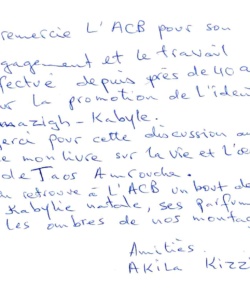 remercie L'ACB pour son
gagement et le travail
fectué depuis près de 40 a
ur la promotion de l'ide
mazigh - Kabyle.
erci pour cette discussion au
e mon livre sur la vie et l'œ
de Taos Amrouche.
retrouve à L'ACB un bout de
Kabylie natale, ses parfum
les ombres de nos montag
Amitiés
AKILA KIZZI